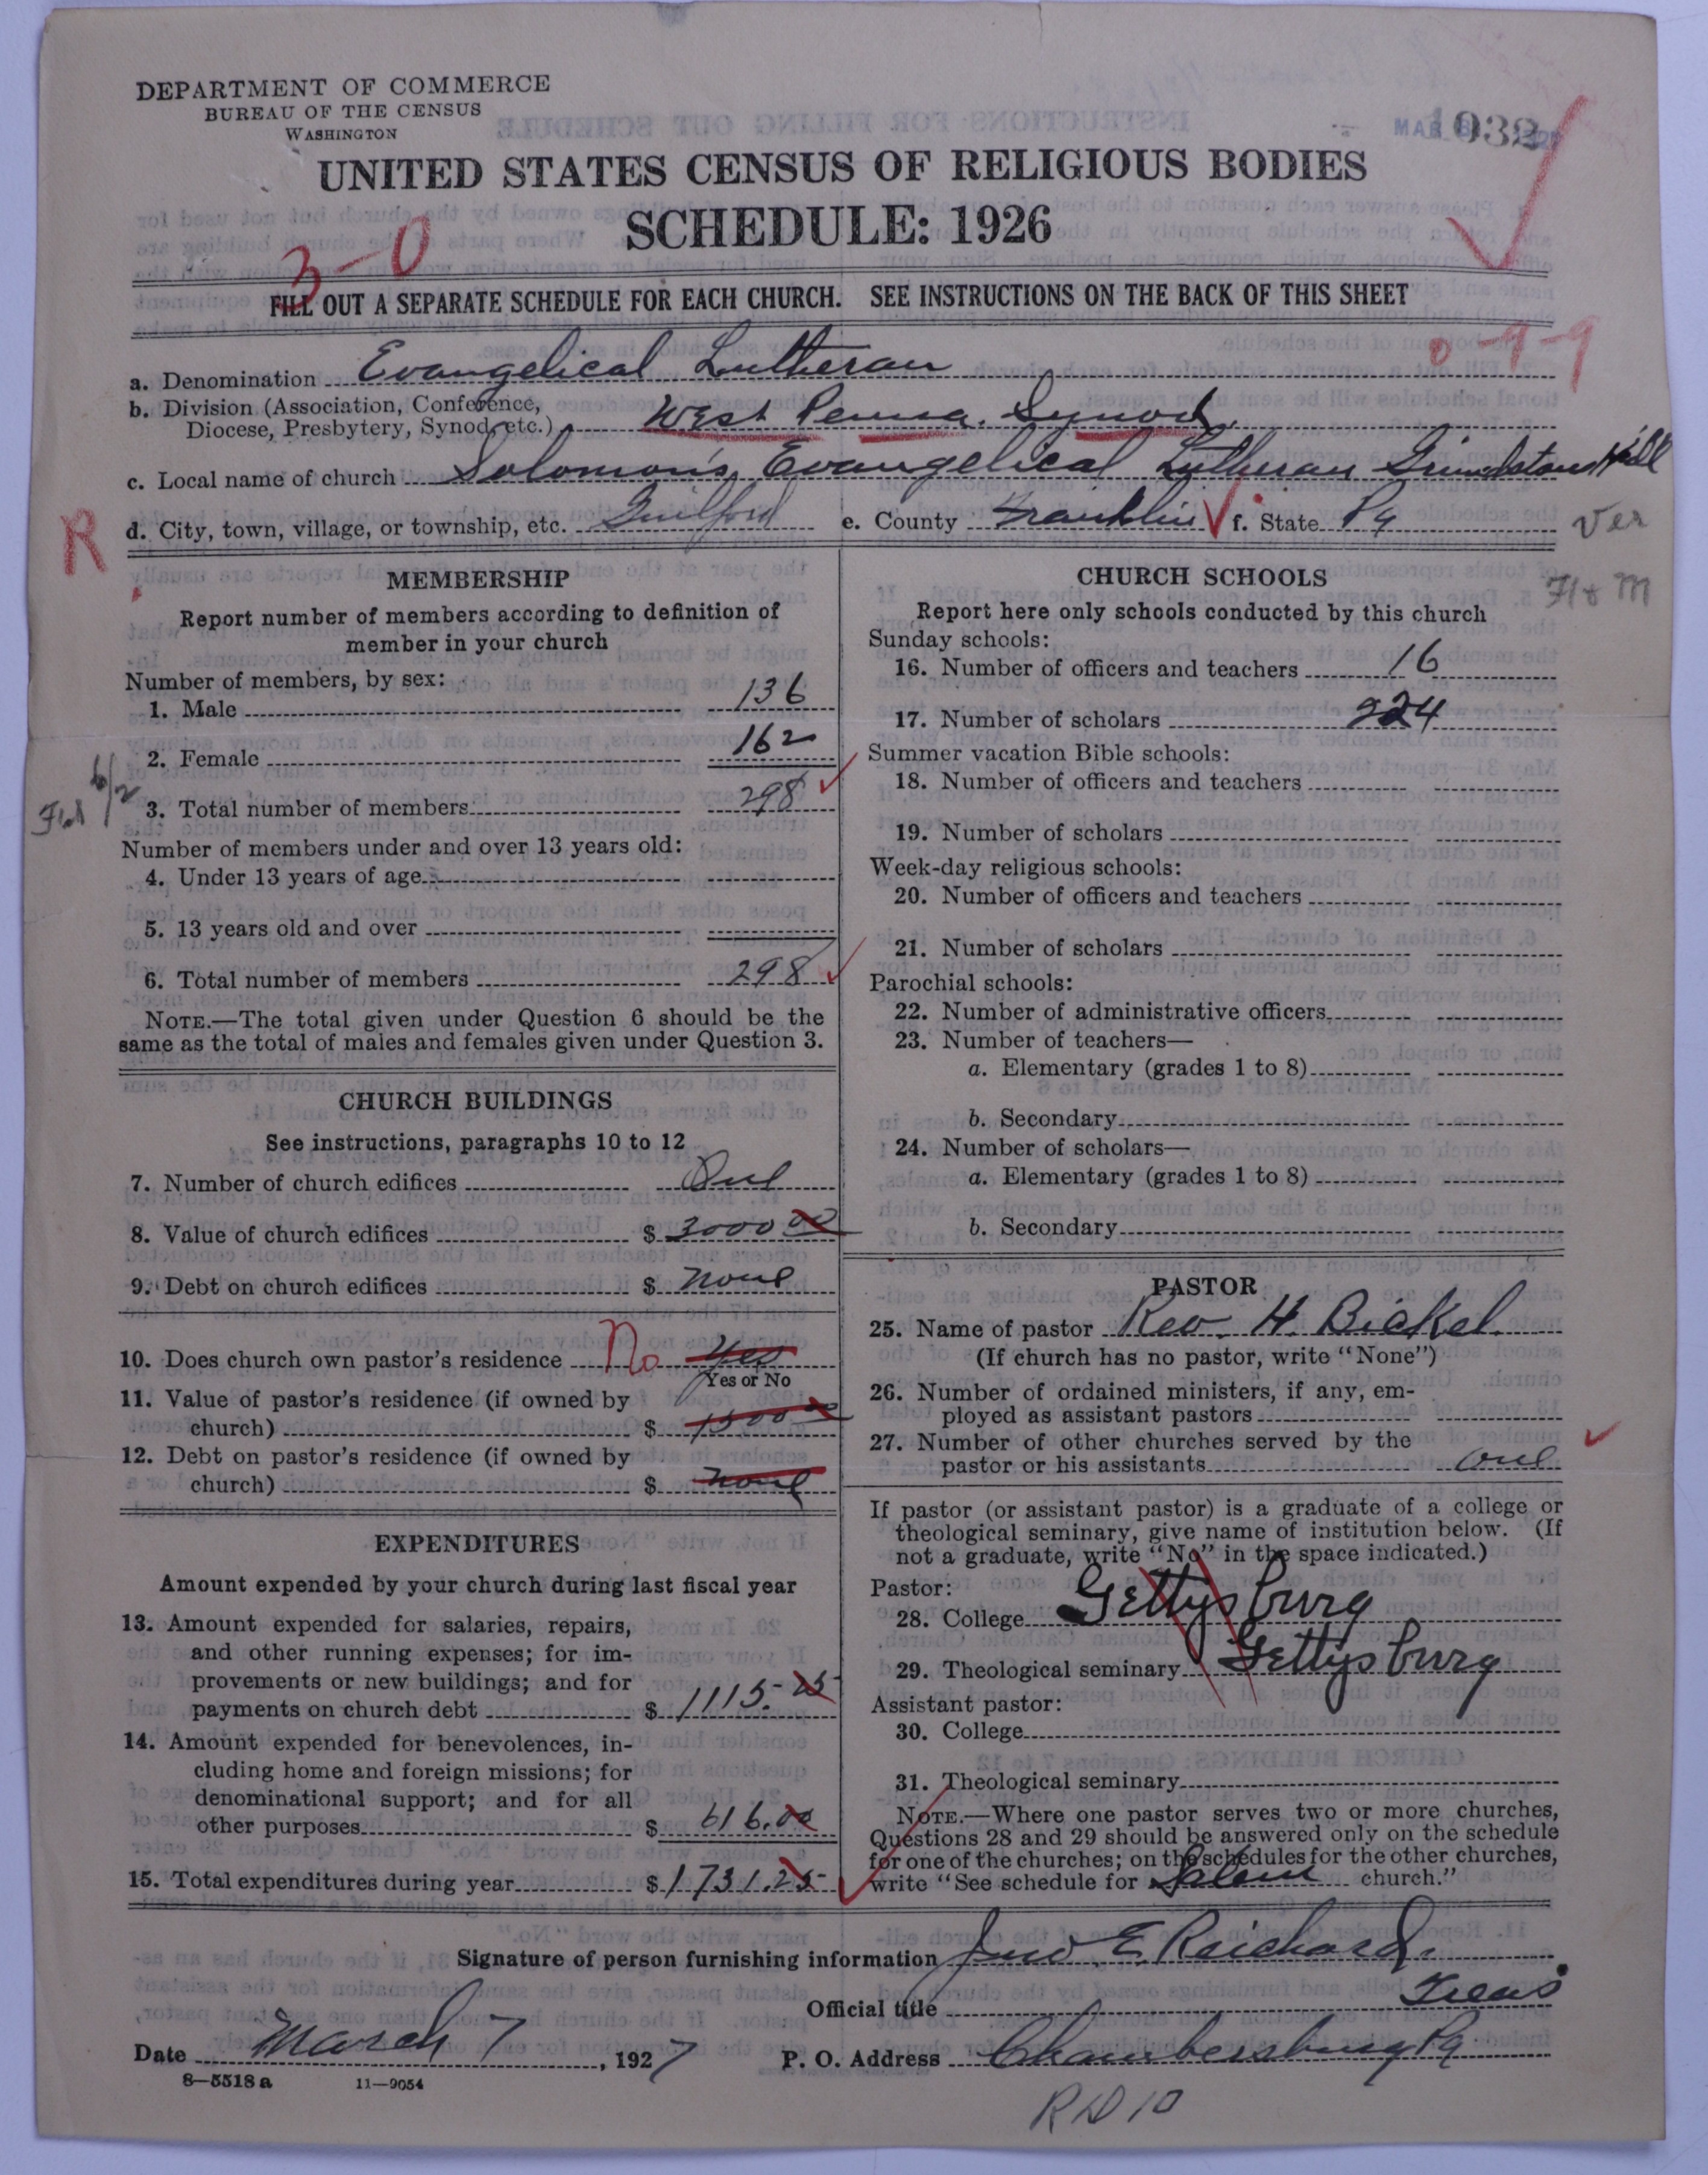 DEPARTMENT OF COMMERCE
BUREAU OF THE CENSUS
WASHINGTON
1032
UNITED STATES CENSUS OF RELIGIOUS BODIES
SCHEDULE: 1926
3-0
FILL OUT A SEPARATE SCHEDULE FOR EACH CHURCH. SEE INSTRUCTIONS ON THE BACK OF THIS SHEET
0-9-9
a. Denomination Evangelical Lutheran
b. Division (Association, Conference, Diocese, Presbytery, Synod, etc.) West Penna. Synod
c. Local name of church Solomon's Evangelical Lutheran Grindstone Hill
R
d. City, town, village, or township, etc. Guilford e. County Franklin f. State Pa
Ver
MEMBERSHIP
Report number of members according to definition of
member in your church
Number of members, by sex:
1. Male 136
2. Female 162
3. Total number of members 298
Number of members under and over 13 years old:
4. Under 13 years of age
5. 13 years old and over
6. Total number of members 298
NOTE.—The total given under Question 6 should be the
same as the total of males and females given under Question 3.
CHURCH BUILDINGS
See instructions, paragraphs 10 to 12
7. Number of church edifices One
8. Value of church edifices $ 3000 00
9. Debt on church edifices $ none
10. Does church own pastor's residence No Yes
Yes or No
11. Value of pastor's residence (if owned by
church) $ 1500 00
12. Debt on pastor's residence (if owned by
church) $ none
EXPENDITURES
Amount expended by your church during last fiscal year
13. Amount expended for salaries, repairs,
and other running expenses; for im-
provements or new buildings; and for
payments on church debt $ 1115.25
14. Amount expended for benevolences, in-
cluding home and foreign missions; for
denominational support; and for all
other purposes $ 616.00
15. Total expenditures during year $ 1731.25
CHURCH SCHOOLS
Report here only schools conducted by this church
Sunday schools:
16. Number of officers and teachers 16
17. Number of scholars 224
Summer vacation Bible schools:
18. Number of officers and teachers
19. Number of scholars
Week-day religious schools:
20. Number of officers and teachers
21. Number of scholars
Parochial schools:
22. Number of administrative officers
23. Number of teachers—
a. Elementary (grades 1 to 8)
b. Secondary
24. Number of scholars—
a. Elementary (grades 1 to 8)
b. Secondary
PASTOR
25. Name of pastor Rev. H. Bickel
(If church has no pastor, write "None")
26. Number of ordained ministers, if any, em-
ployed as assistant pastors
27. Number of other churches served by the
pastor or his assistants one
If pastor (or assistant pastor) is a graduate of a college or
theological seminary, give name of institution below. (If
not a graduate, write "No" in the space indicated.)
Pastor:
28. College Gettysburg
29. Theological seminary Gettysburg
Assistant pastor:
30. College
31. Theological seminary
NOTE.—Where one pastor serves two or more churches,
Questions 28 and 29 should be answered only on the schedule
for one of the churches; on the schedules for the other churches,
write "See schedule for Salem church."
Signature of person furnishing information Jno. E. Reichard
Official title Treas.
Date March 7, 1927 P. O. Address Chambersburg Pa
8—5518 a 11—9054
R D 10